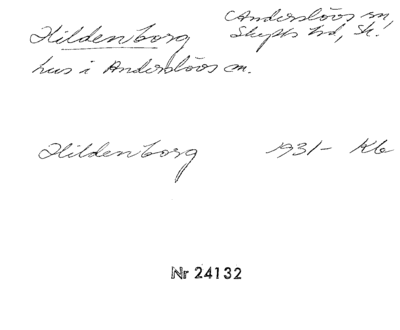 Hildenborg Anderslövs sn,
Skytts hd, Sk.
hus i Anderslövs sn.
Hildenborg 1931- Kb
Nr 24132